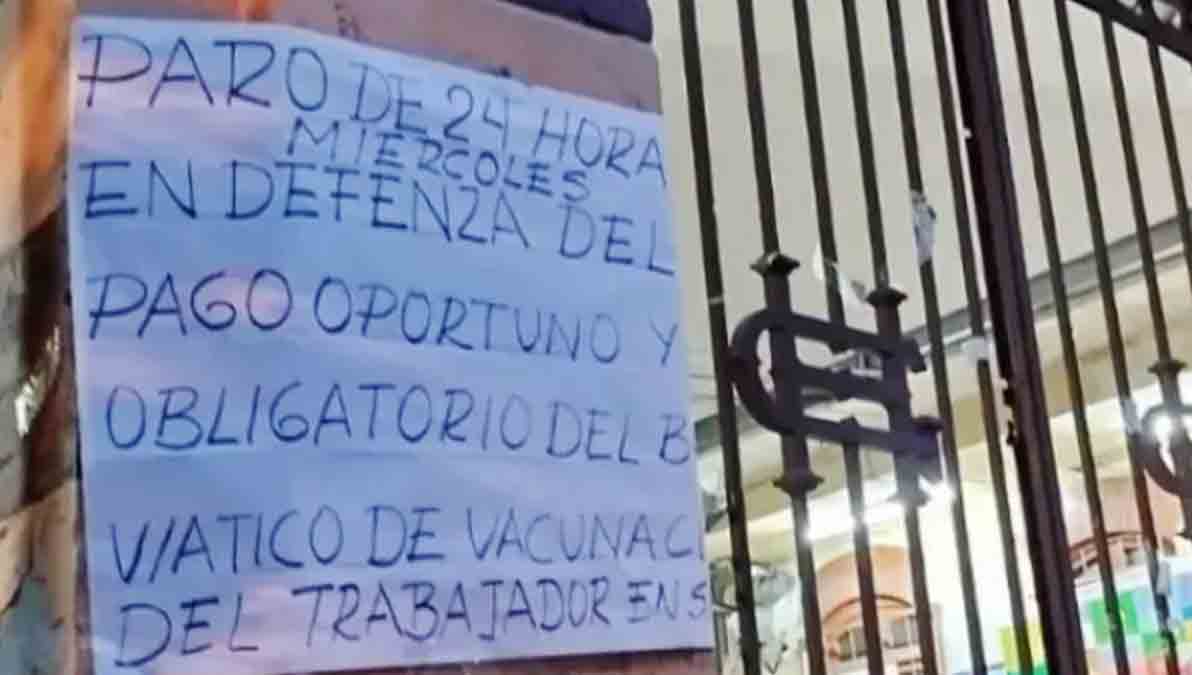 PARO DE 24 HORA
MIERCOLES
EN DEFENZA DEL
PAGO OPORTUNO Y
OBLIGATORIO DEL B
VIATICO DE VACUNACI
DEL TRABAJADOR EN S